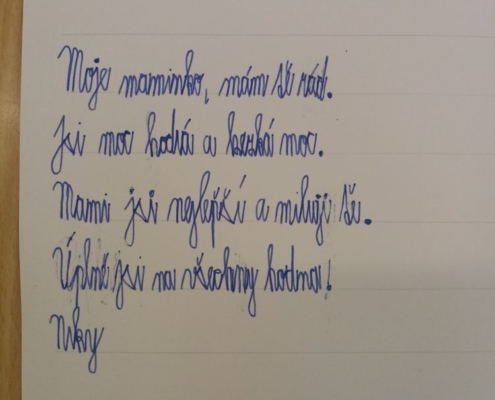 Moje maminko, mám tě rád.
Jsi moc hodná a hezká moc.
Mami jsi nejlepší a miluji tě.
Úplně jsi na všechny hodna!
Niky